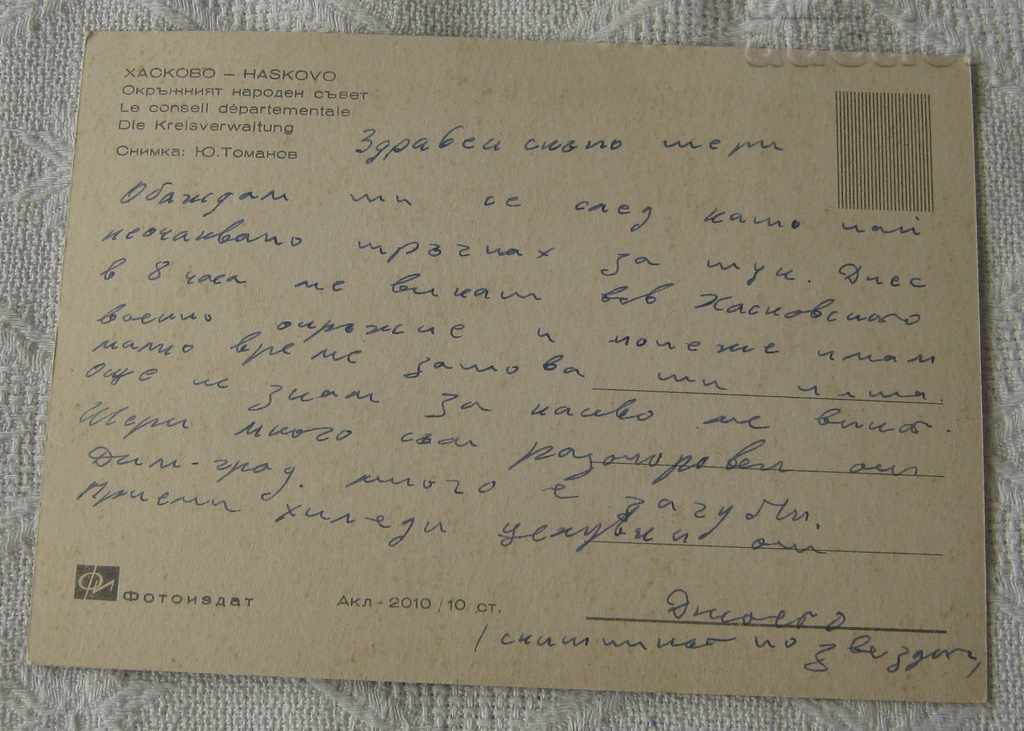 ХАСКОВО – HASKOVO
Окръжният народен съвет
Le conseil départementale
Die Kreisverwaltung
Снимка: Ю. Томанов
Здравей скъпо мери
Обаждам ти се след като най
неочаквано тръгнах за тук. Днес
в 8 часа ме викат във Хасковското
военно окръжие и понеже имам
малко време затова ти
още не знам за какво ме викат.
Мери много съм разочарован от
Дим-град. много е
Приеми хиляди целувки от
ФОТОИЗДАТ
Акл - 2010 / 10 ст.
по